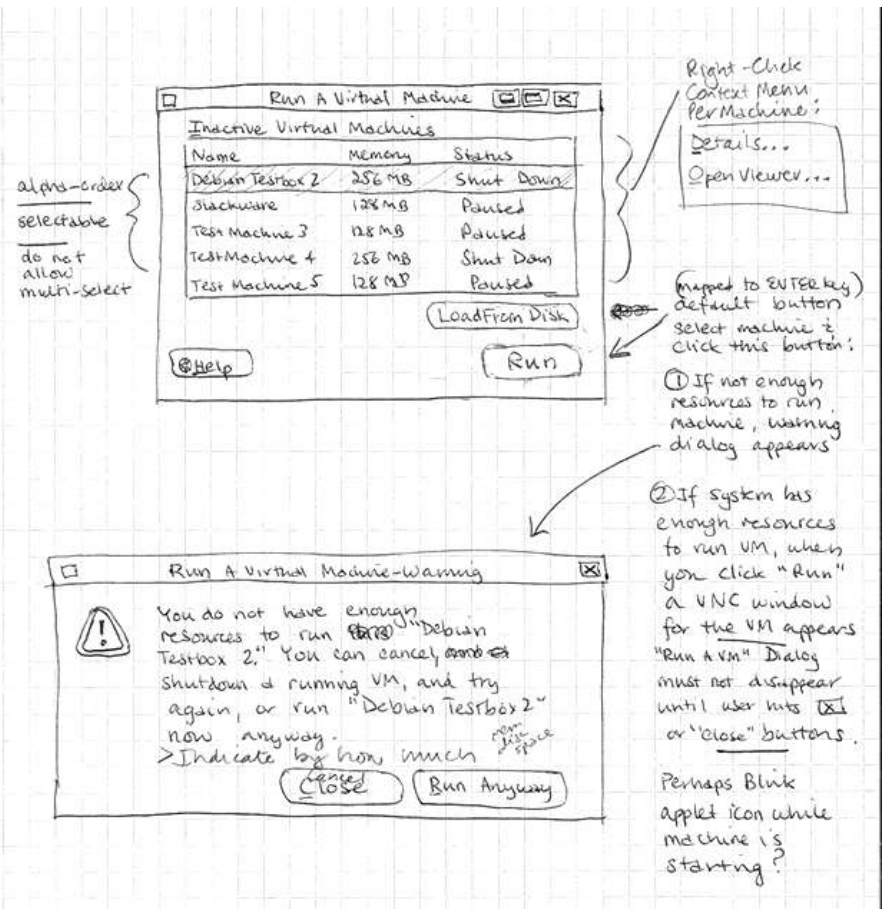 Run A Virtual Machine
Inactive Virtual Machines
Name Memory Status
Debian Testbox 2 256 MB Shut Down
Slackware 128 MB Paused
Test Machine 3 128 MB Paused
Test Machine 4 256 MB Shut Down
Test Machine 5 128 MB Paused
Load From Disk
Help
Run
alpha-order
selectable
do not
allow
multi-select
Right-Click
Context Menu
Per Machine:
Details...
Open Viewer...
(mapped to ENTER key)
default button
select machine &
click this button:
① If not enough
resources to run
machine, warning
dialog appears
② If system has
enough resources
to run VM, when
you click "Run"
a VNC window
for the VM appears
"Run A VM" Dialog
must not disappear
until user hits X
or "close" buttons.
Perhaps Blink
applet icon while
machine is
starting?
Run A Virtual Machine-Warning
You do not have enough
resources to run "Debian
Testbox 2." You can cancel,
shutdown a running VM, and try
again, or run "Debian Testbox 2"
now anyway.
>Indicate by how much
mem
disk
space
Cancel
Close
Run Anyway